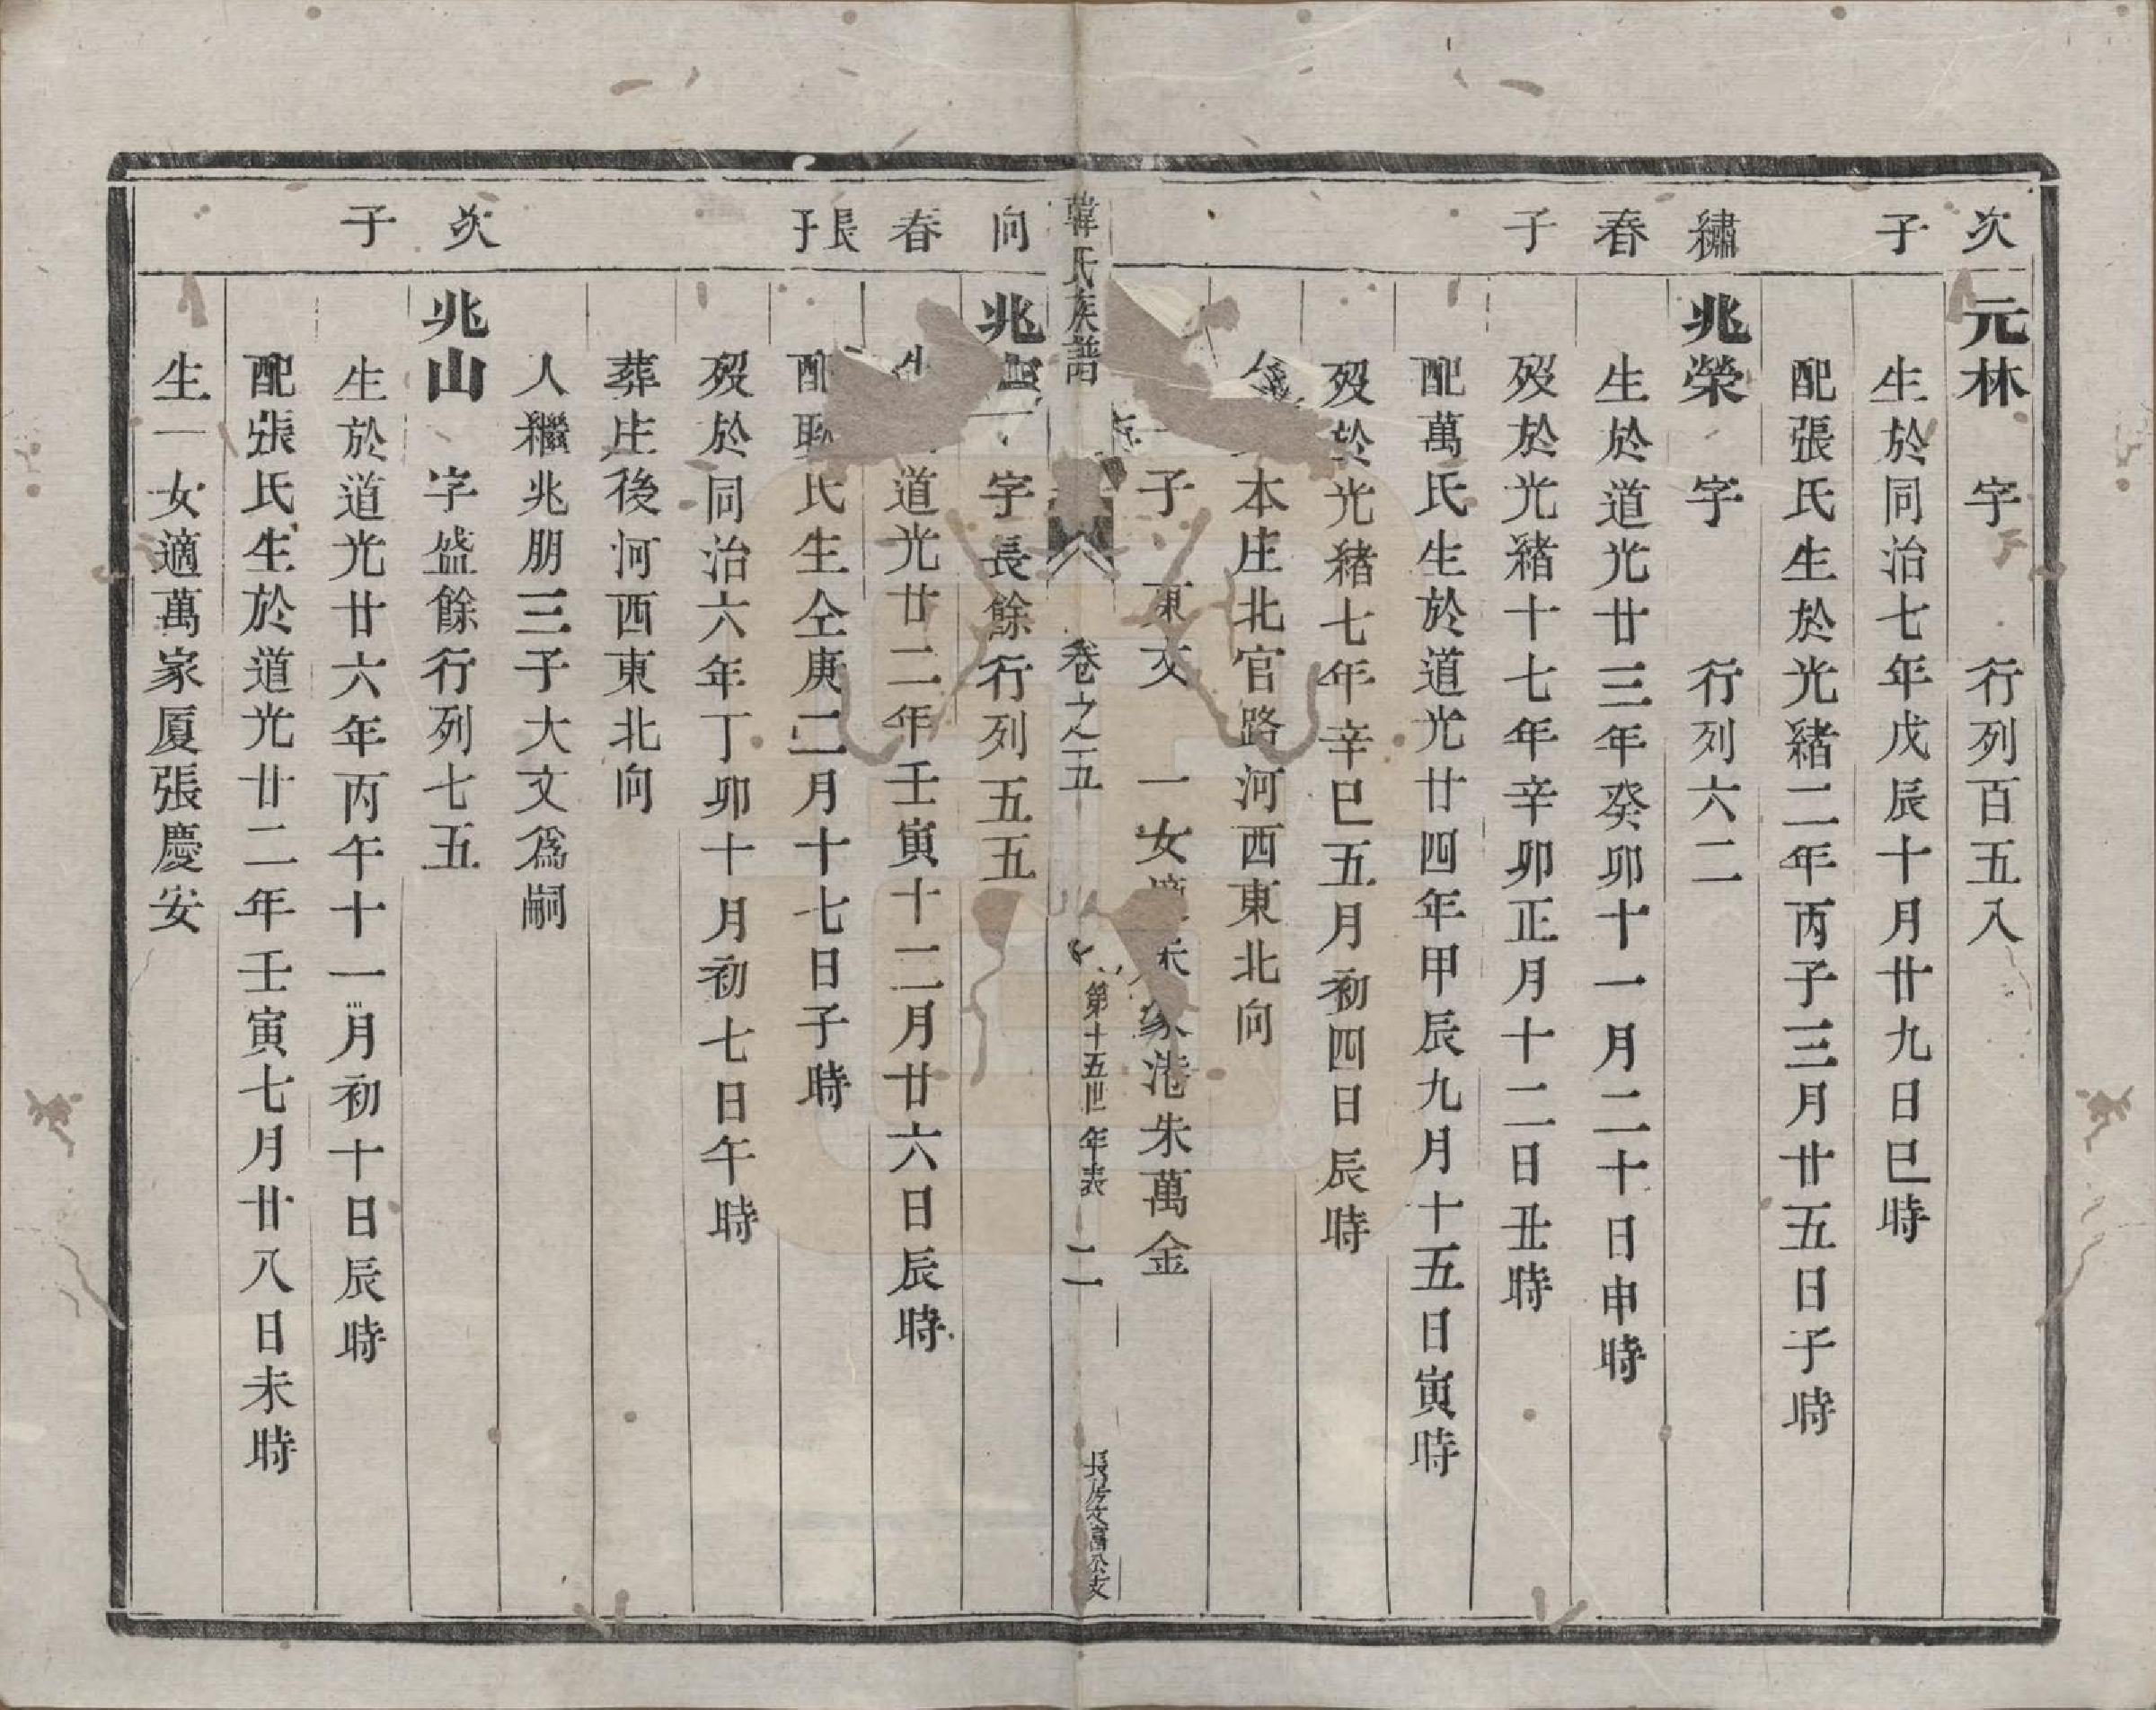 次子
元林 字 行列百五八
生於同治七年戊辰十月廿九日巳時
配張氏生於光緒二年丙子三月廿五日子時
繡春子
兆榮 字 行列六二
生於道光廿三年癸卯十一月二十日申時
歿於光緒十七年辛卯正月十二日丑時
配萬氏生於道光廿四年甲辰九月十五日寅時
歿於光緒七年辛巳五月初四日辰時
本庄北官路河西東北向
子 東文 一女 家港朱萬金
韓氏族譜 卷之五 第十五世年表 二 長房文富公支
向春長子
兆 字長餘行列五五
道光廿二年壬寅十二月廿六日辰時
配耿氏生仝庚二月十七日子時
歿於同治六年丁卯十月初七日午時
葬庄後河西東北向
人繼兆朋三子大文爲嗣
次子
兆山 字盛餘行列七五
生於道光廿六年丙午十一月初十日辰時
配張氏生於道光廿二年壬寅七月廿八日未時
生一女適萬家厦張慶安